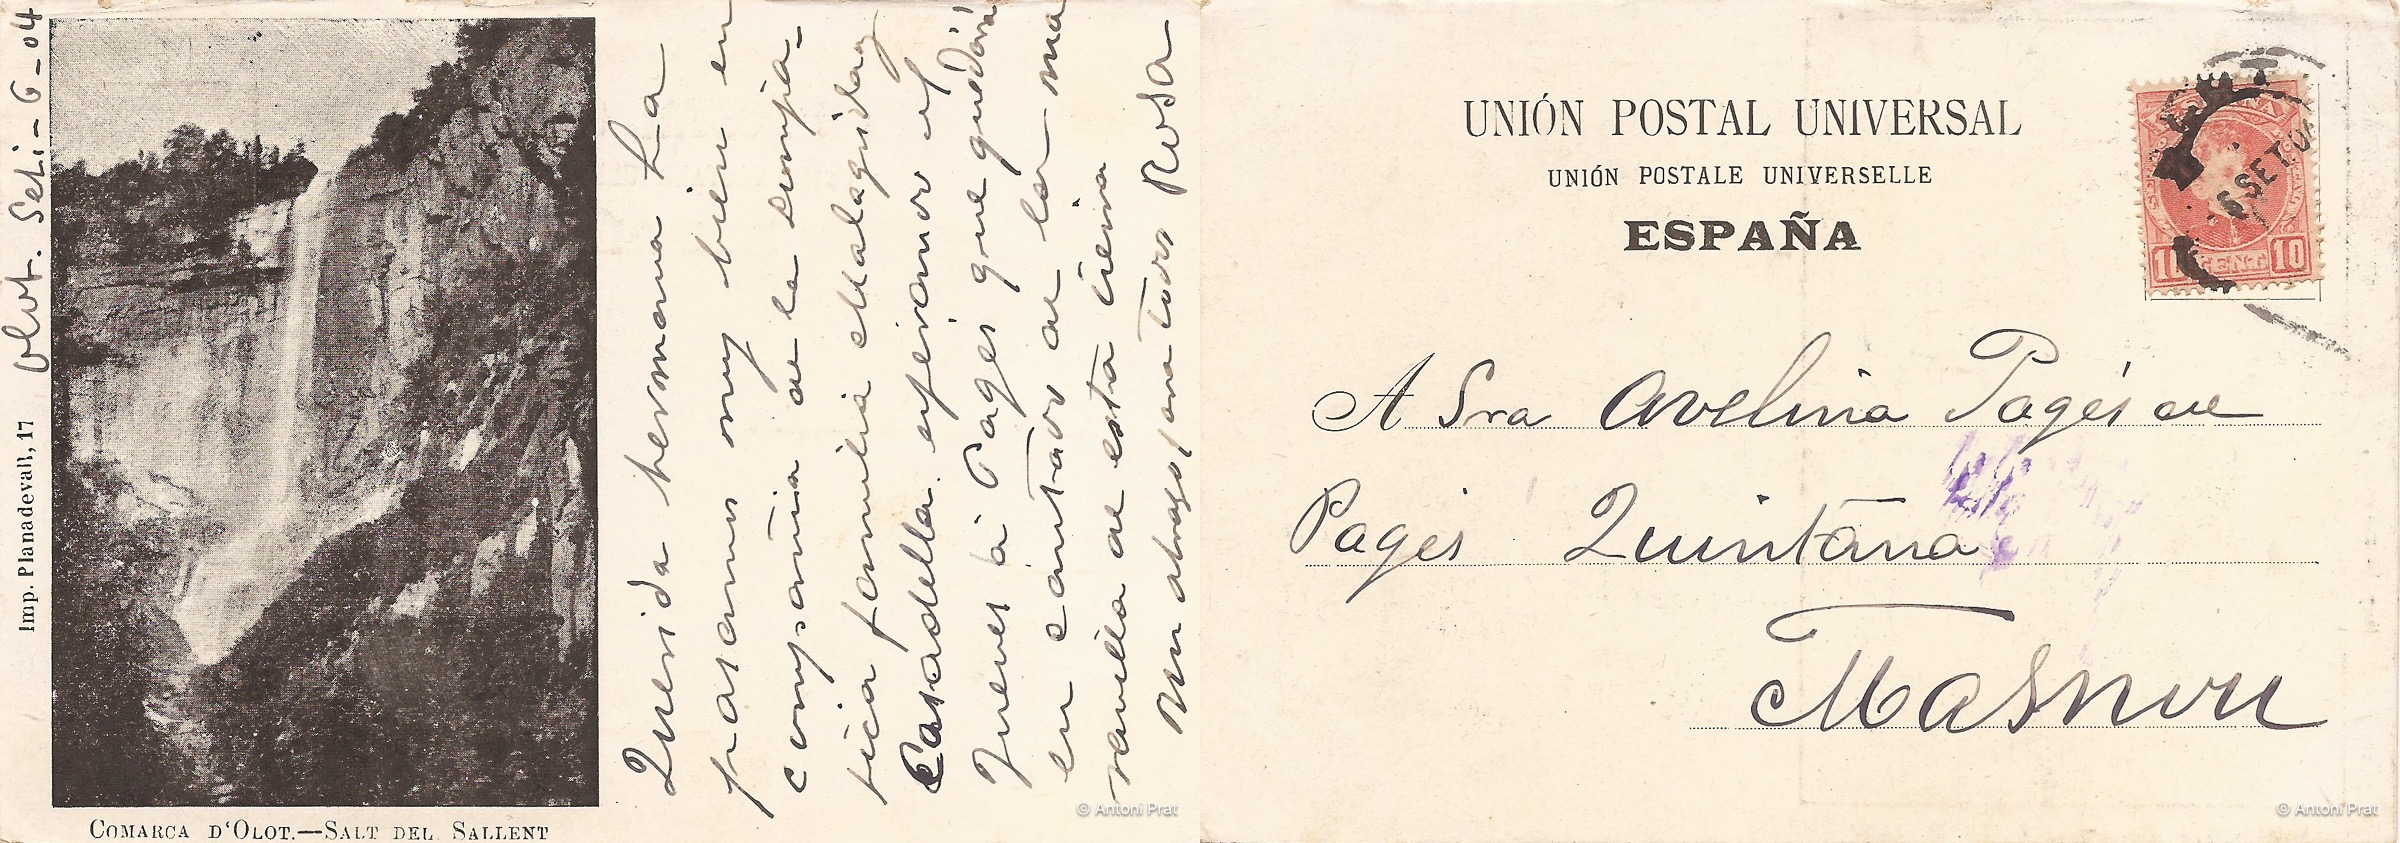 Olot. Set. - 6 - 04
Imp. Planadevall, 17
COMARCA D'OLOT.—SALT DEL SALLENT
Querida hermana La
pasamos muy bien en
compañia de la simpa-
tica familia Malagrida y
Casadella. esperamos el
Jueves á Pagés que quedán
encantados de la ma
ravilla de esta tierra
Un abrazo para todos Rosa
© Antoni Prat
UNIÓN POSTAL UNIVERSAL
UNIÓN POSTALE UNIVERSELLE
ESPAÑA
10 CENT 10
6 SET 04
A Sra Avelina Pagés de
Pagés Quintana
Masnou
© Antoni Prat